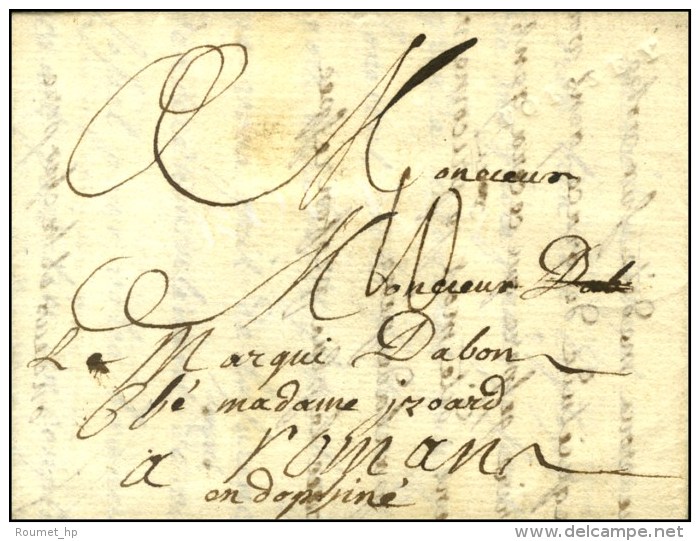 A Moncieur
Moncieur Dab
Le Marqui Dabon
Ché madame jzoard
a romans
en dophiné
Roumet_hp
delcampe.net